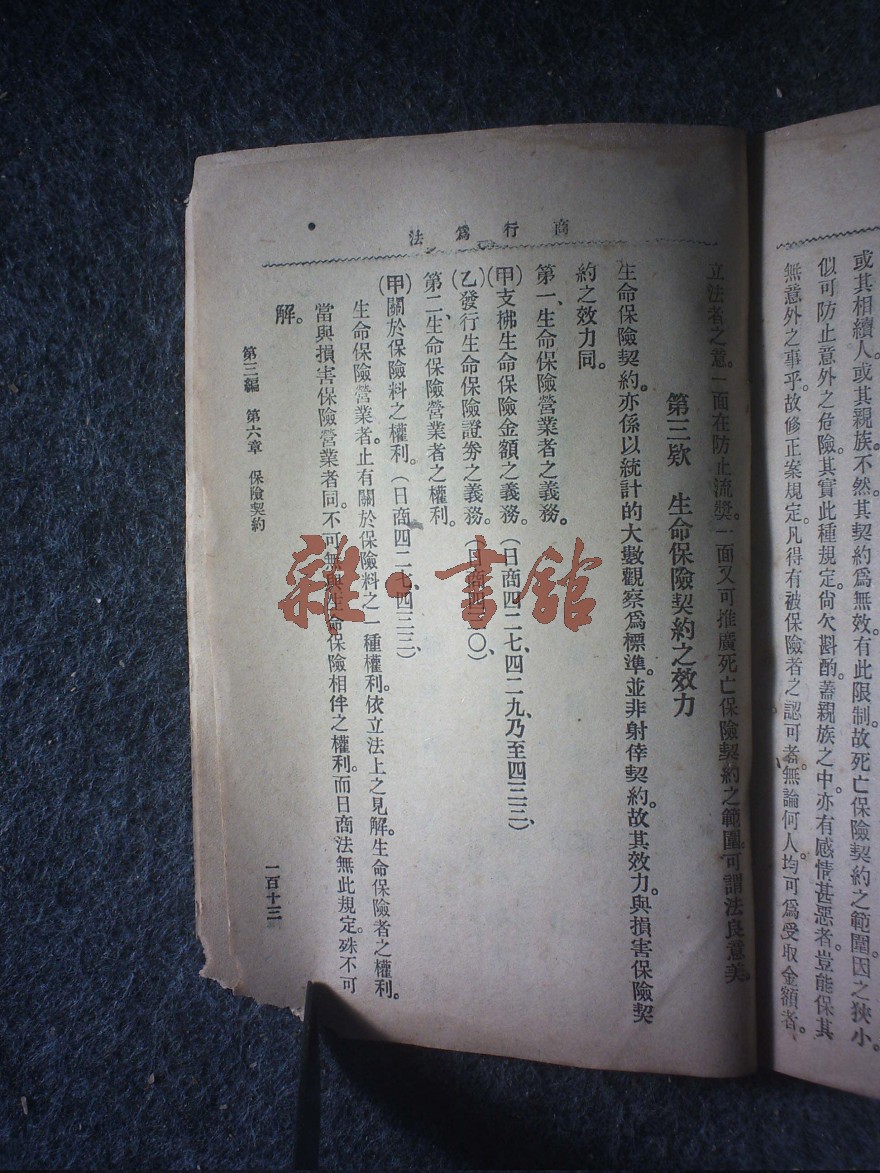 或其相續人。或其親族。不然。其契約爲無效。有此限制。故死亡保險契約之範圍。因之狹小。
似可防止意外之危險。其實此種規定。尙欠斟酌。蓋親族之中。亦有感情甚惡者。豈能保其
無意外之事乎。故修正案規定。凡得有被保險者之認可者。無論何人。均可爲受取金額者。
商行爲法
立法者之意。一面在防止流獘。一面又可推廣死亡保險契約之範圍。可謂法良意美。
第三欵 生命保險契約之效力
生命保險契約。亦係以統計的大數觀察爲標準。並非射倖契約。故其效力。與損害保險契
約之效力同。
第一、生命保險營業者之義務。
(甲)支拂生命保險金額之義務。(日商四二七、四二九、乃至四三三、)
(乙)發行生命保險證劵之義務。(日商四三〇)
第二、生命保險營業者之權利。
(甲)關於保險料之權利。(日商四二七、四三三、)
生命保險營業者。止有關於保險料之一種權利。依立法上之見解。生命保險者之權利。
當與損害保險營業者同。不可無與生命保險相伴之權利。而日商法無此規定。殊不可
解。
第三編 第六章 保險契約
一百十三
雜·書館